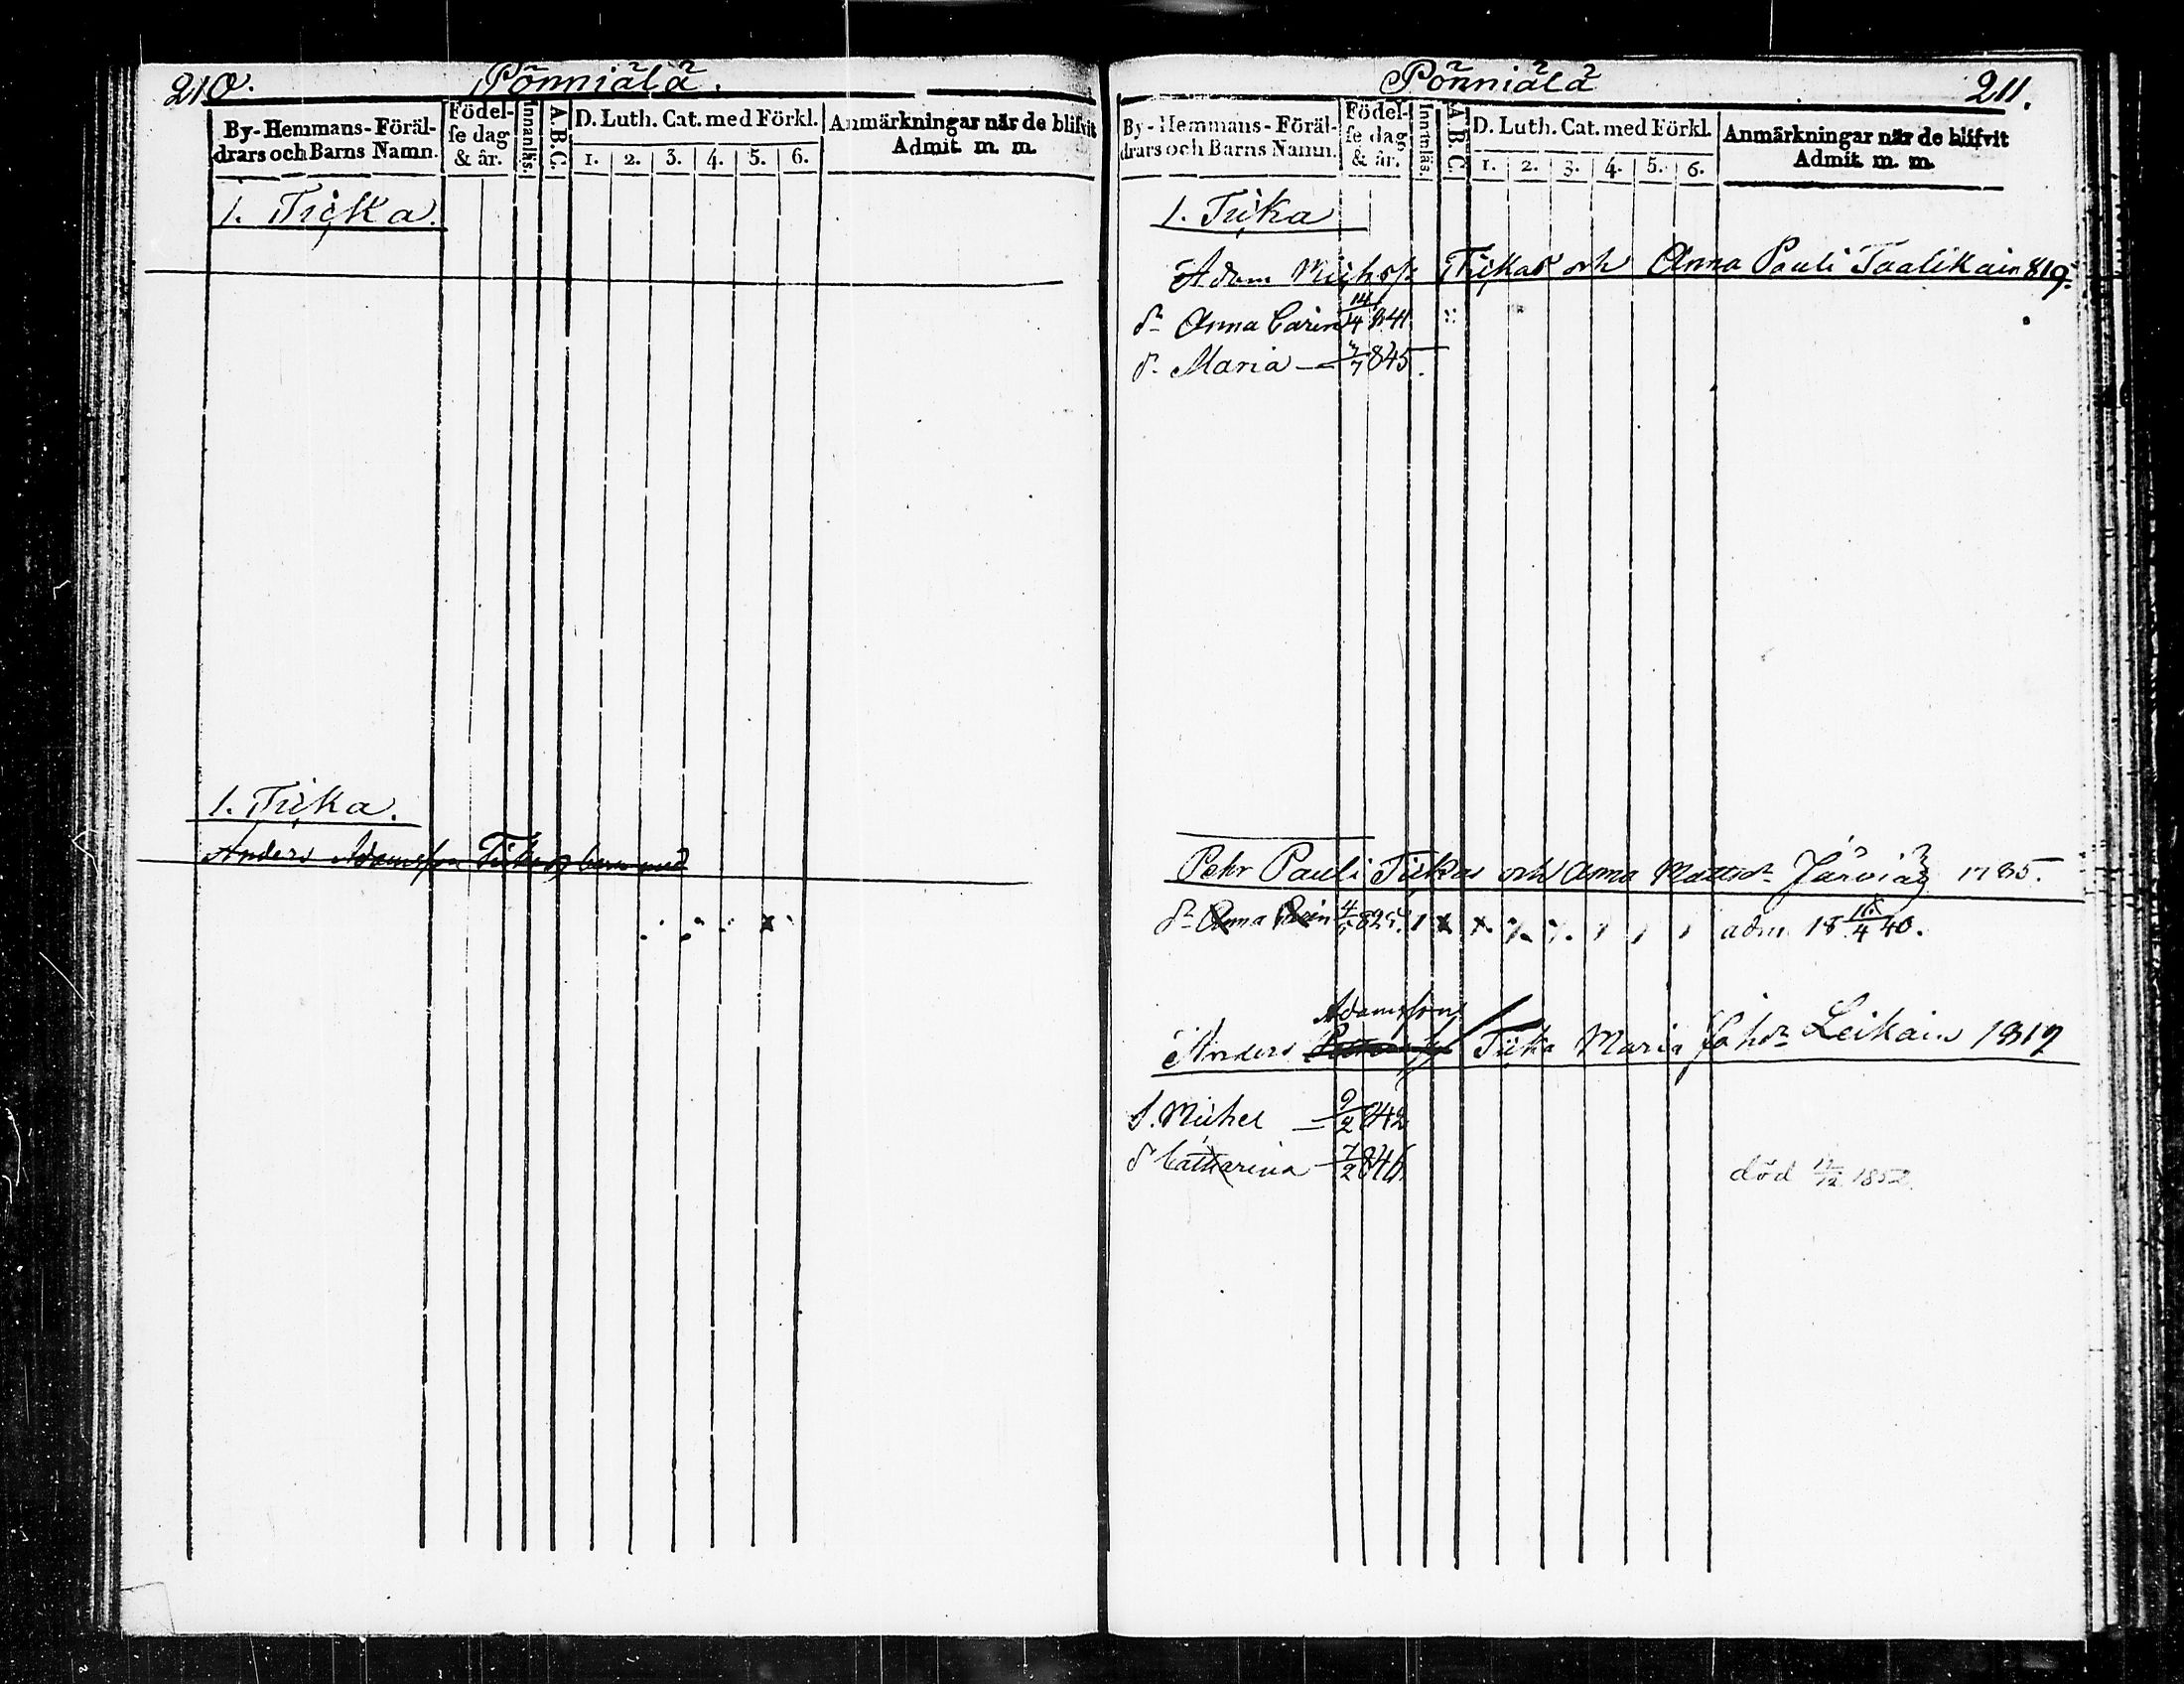 210. Pönniälä.
By-Hemmans-Föräl-
drars och Barns Namn.
Födel-
se dag
& år.
Innanläs.
A.B.C.
D. Luth. Cat. med Förkl.
1. 2. 3. 4. 5. 6.
Anmärkningar när de blifvit
Admit. m. m.
1. Tiika.
1. Tiika.
Anders Adamsson Tiikas barn med
Pönniälä 211.
By-Hemmans-Föräl-
drars och Barns Namn.
Födel-
se dag
& år.
Innanläs.
A.B.C.
D. Luth. Cat. med Förkl.
1. 2. 3. 4. 5. 6.
Anmärkningar när de blifvit
Admit. m. m.
1. Tiika
Adam Michelss Tiikas och Anna Pauli Taalikain 819.
dr Anna Carin 14/4 841
d. Maria 845.
Pehr Pauli Tiikas och Anna Mattsdr 1785.
dr Anna Carin 825. adm 18 /4 40.
Adamsson
Anders Tiika Maria Johdr Leikain 1819
s. Michel 9/2 842
d Catharina 7/2 846. död 1852.